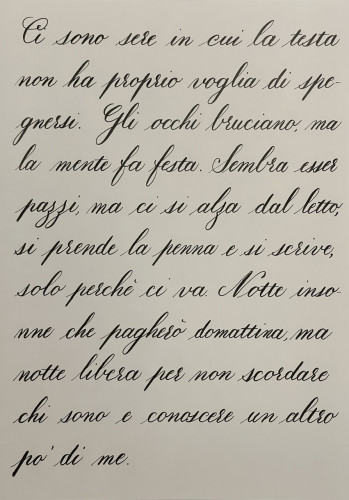 Ci sono sere in cui la testa
non ha proprio voglia di spe-
gnersi. Gli occhi bruciano, ma
la mente fa festa. Sembra esser
pazzi, ma ci si alza dal letto,
si prende la penna e si scrive,
solo perchè ci va. Notte inso-
nne che pagherò domattina, ma
notte libera per non scordare
chi sono e conoscere un altro
po' di me.